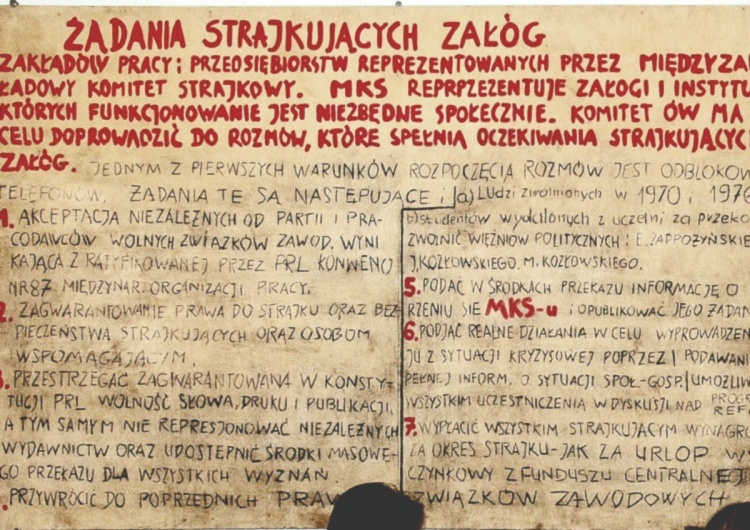 ŻĄDANIA STRAJKUJĄCYCH ZAŁÓG
ZAKŁADÓW PRACY i PRZEDSIĘBIORSTW REPREZENTOWANYCH PRZEZ MIĘDZYZA
ŁADOWY KOMITET STRAJKOWY. MKS REPRPZEZENTUJE ZAŁOGI I INSTYTU
KTÓRYCH FUNKCJONOWANIE JEST NIEZBĘDNE SPOŁECZNIE. KOMITET ÓW MA
CELU DOPROWADZIĆ DO ROZMÓW, KTÓRE SPEŁNIĄ OCZEKIWANIA STRAJKUJĄCYC
ZAŁÓG. JEDNYM Z PIERWSZYCH WARUNKÓW ROZPOCZĘCIA ROZMÓW JEST ODBLOKOW
TELEFONÓW. ŻĄDANIA TE SĄ NASTĘPUJĄCE:
1. AKCEPTACJA NIEZALEŻNYCH OD PARTII I PRA-
CODAWCÓW WOLNYCH ZWIĄZKÓW ZAWOD. WYNI
KAJĄCA Z RATYFIKOWANEJ PRZEZ PRL KONWENCJ
NR 87 MIĘDZYNAR. ORGANIZACJI PRACY.
2. ZAGWARANTOWANIE PRAWA DO STRAJKU ORAZ BEZ
PIECZEŃSTWA STRAJKUJĄCYCH ORAZ OSOBOM
WSPOMAGAJĄCYM.
3. PRZESTRZEGAĆ ZAGWARANTOWANĄ W KONSTY-
TUCJI PRL WOLNOŚĆ SŁOWA, DRUKU I PUBLIKACJI,
A TYM SAMYM NIE REPRESJONOWAĆ NIEZALEŻNYCH
WYDAWNICTW ORAZ UDOSTĘPNIĆ ŚRODKI MASOWE-
GO PRZEKAZU DLA WSZYSTKICH WYZNAŃ.
. PRZYWRÓCIĆ DO POPRZEDNICH PRAW
a) LUdzi zwolnionych w 1970 i 1976
b) studentów wydalonych z uczelni za przeko
ZWOLNIĆ WIĘŹNIÓW POLITYCZNYCH: E. ZADROŻYŃSKIE
J. KOZŁOWSKIEGO. M. KOZŁOWSKIEGO.
5. PODAĆ W ŚRODKACH PRZEKAZU INFORMACJĘ O
RZENIU SIĘ MKS-u i OPUBLIKOWAĆ JEGO ŻĄDAN
6. PODJĄĆ REALNE DZIAŁANIA W CELU WYPROWADZEN
JU Z SYTUACJI KRYZYSOWEJ POPRZEZ PODAWANI
PEŁNEJ INFORM. O SYTUACJI SPOŁ-GOSP. UMOŻLIW
WSZYSTKIM UCZESTNICZENIA W DYSKUSJI NAD PROGR
REF
7. WYPŁACIĆ WSZYSTKIM STRAJKUJĄCYM WYNAGRO
ZA OKRES STRAJKU-JAK ZA URLOP WY
CZYNKOWY Z FUNDUSZU CENTRALNEJ
ZWIĄZKÓW ZAWODOWYCH